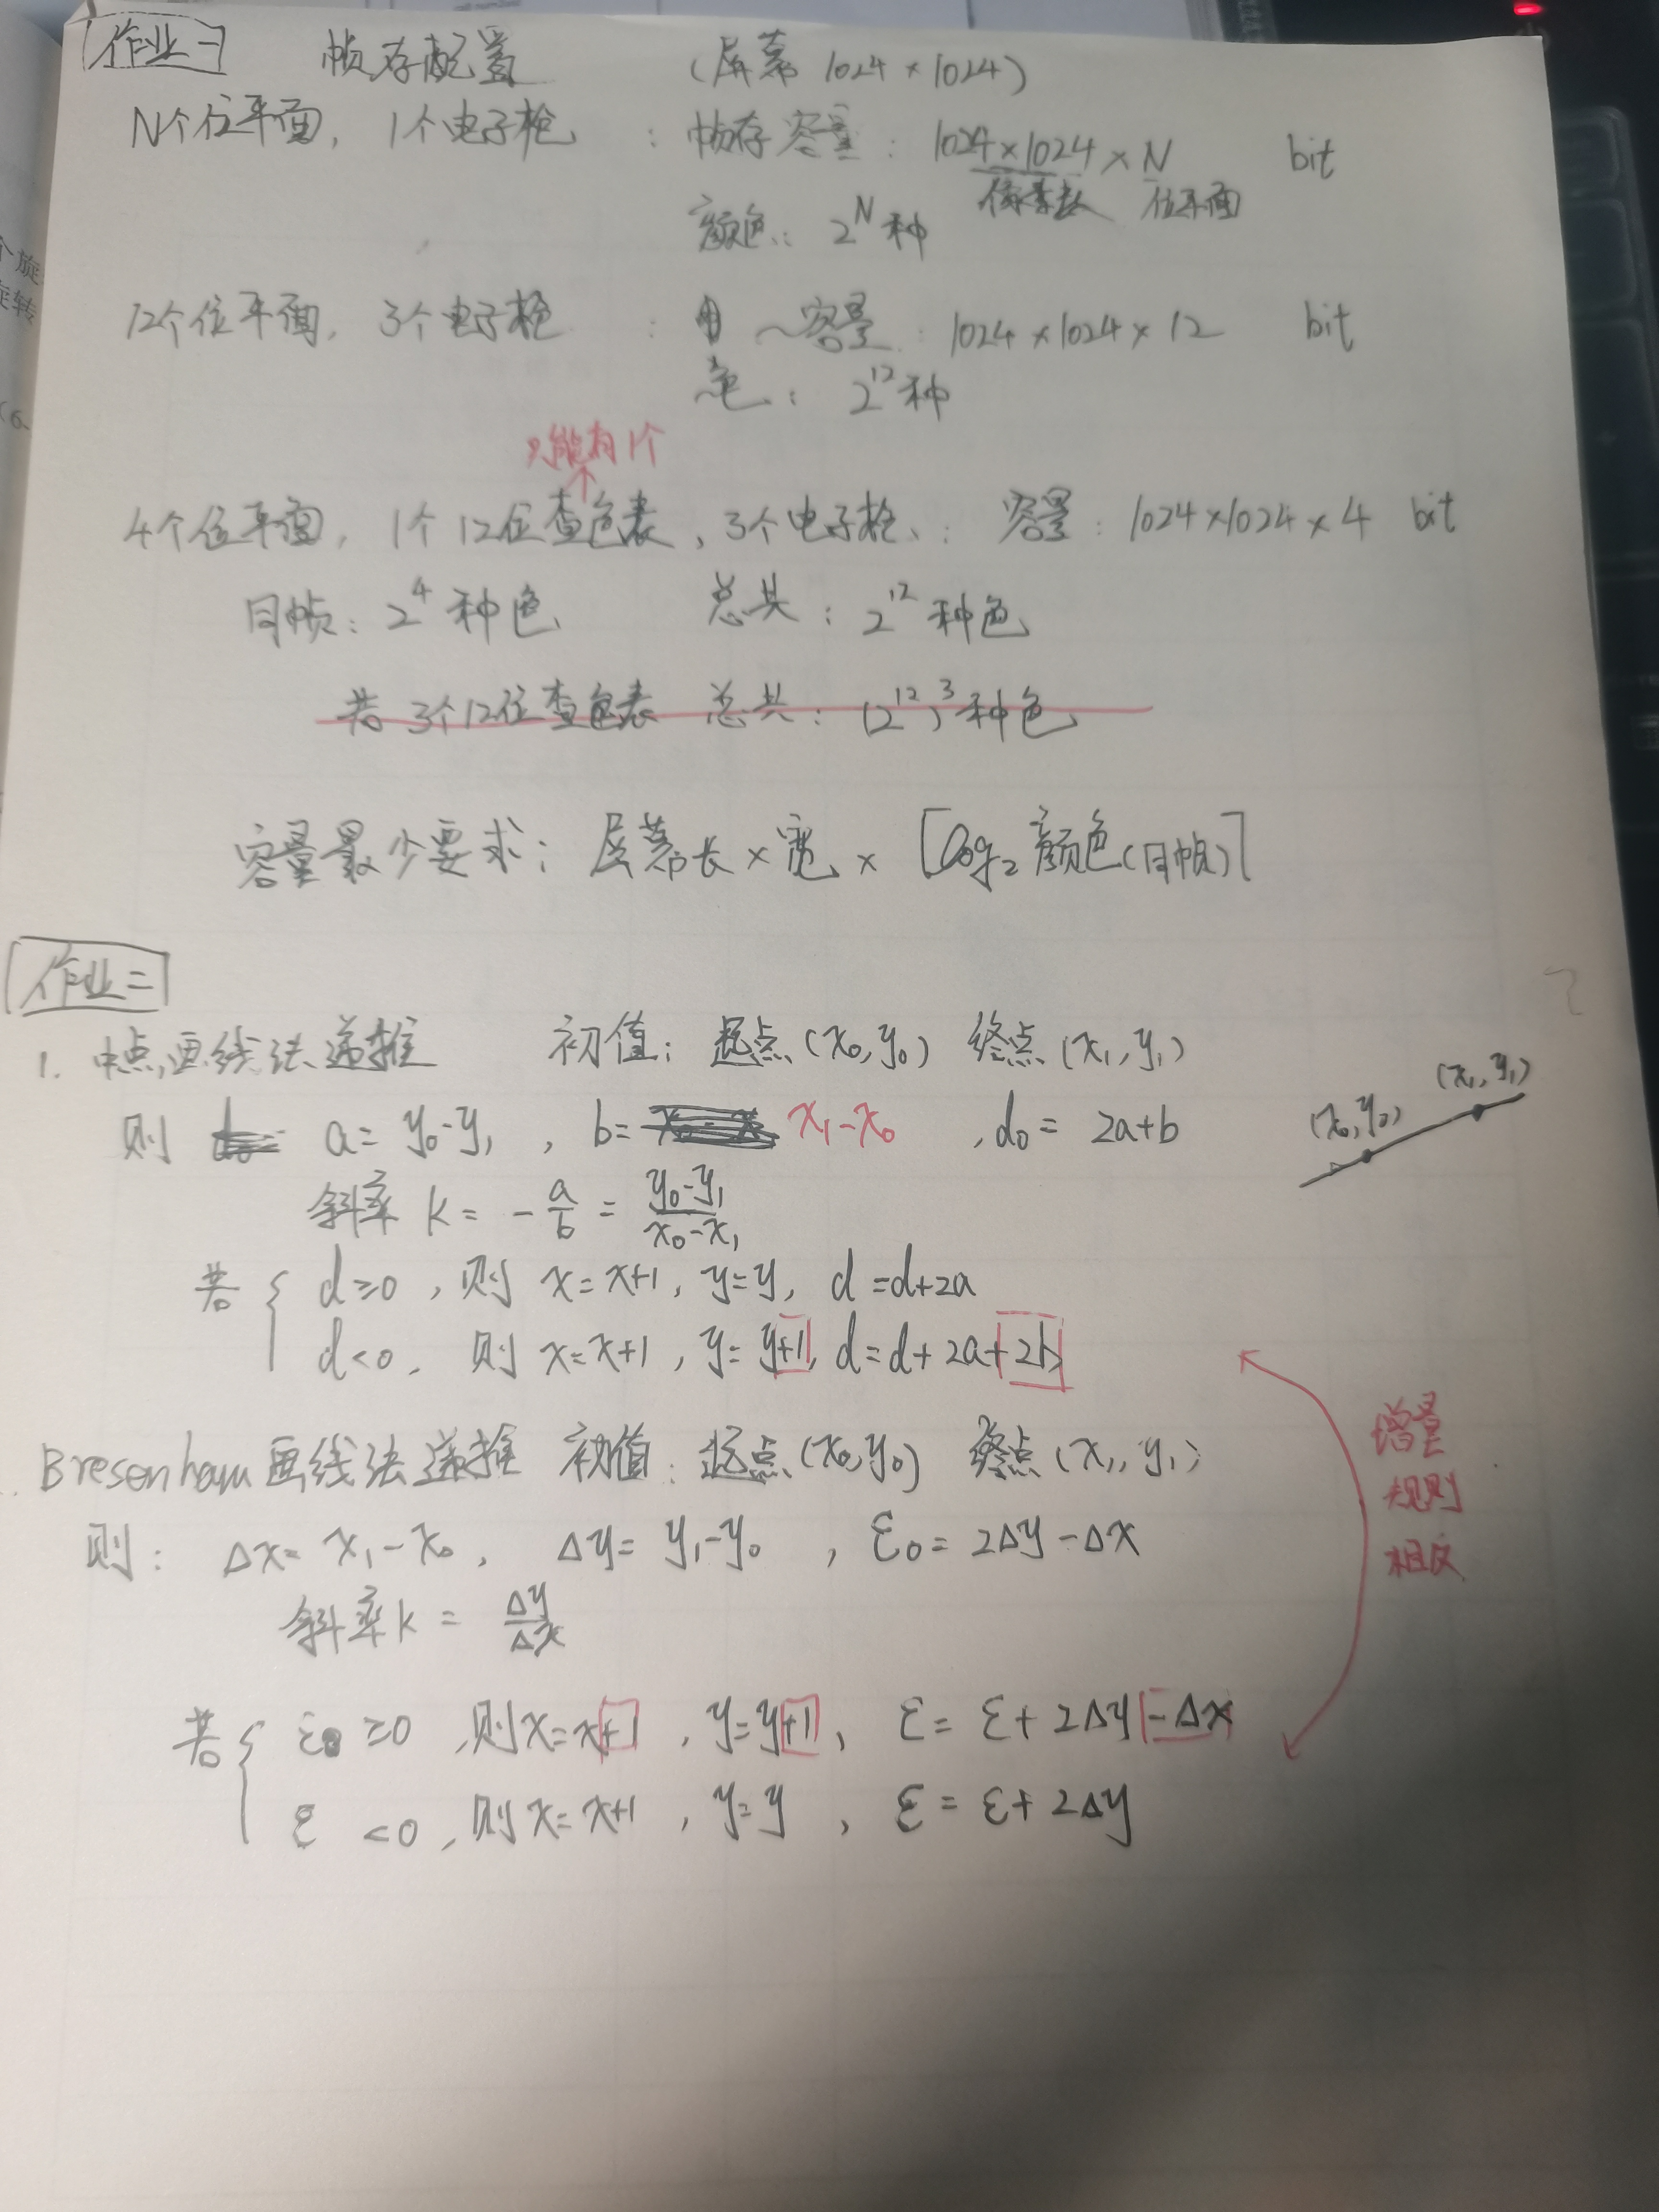 作业一 帧存配置 (屏幕 1024×1024)
N个位平面, 1个电子枪 : 帧存容量: 1024×1024×N bit
像素数 位平面
颜色: 2^N 种
12个位平面, 3个电子枪 : ~容量: 1024×1024×12 bit
色: 2^12 种
只能有1个
4个位平面, 1个12位查色表, 3个电子枪: 容量: 1024×1024×4 bit
同帧: 2^4 种色 总共: 2^12 种色
若 3个12位查色表 总共: (2^12)^3 种色
容量最少要求: 屏幕长×宽×[log₂颜色(同帧)]
作业二
1. 中点画线法递推 初值: 起点(x₀,y₀) 终点(x₁,y₁)
(x₀,y₀) (x₁,y₁)
则 a=y₀-y₁, b= x₁-x₀, d₀= 2a+b
斜率 k = -a/b = (y₀-y₁)/(x₀-x₁)
若 { d≥0, 则 x=x+1, y=y, d=d+2a
d<0, 则 x=x+1, y=y+1, d=d+2a+2b
增量
规则
相反
Bresenham画线法递推 初值: 起点(x₀,y₀) 终点(x₁,y₁)
则: Δx= x₁-x₀, Δy= y₁-y₀, ε₀= 2Δy-Δx
斜率k = Δy/Δx
若 { ε ≥0, 则x=x+1, y=y+1, ε= ε+2Δy-Δx
ε <0, 则x=x+1, y=y, ε= ε+2Δy